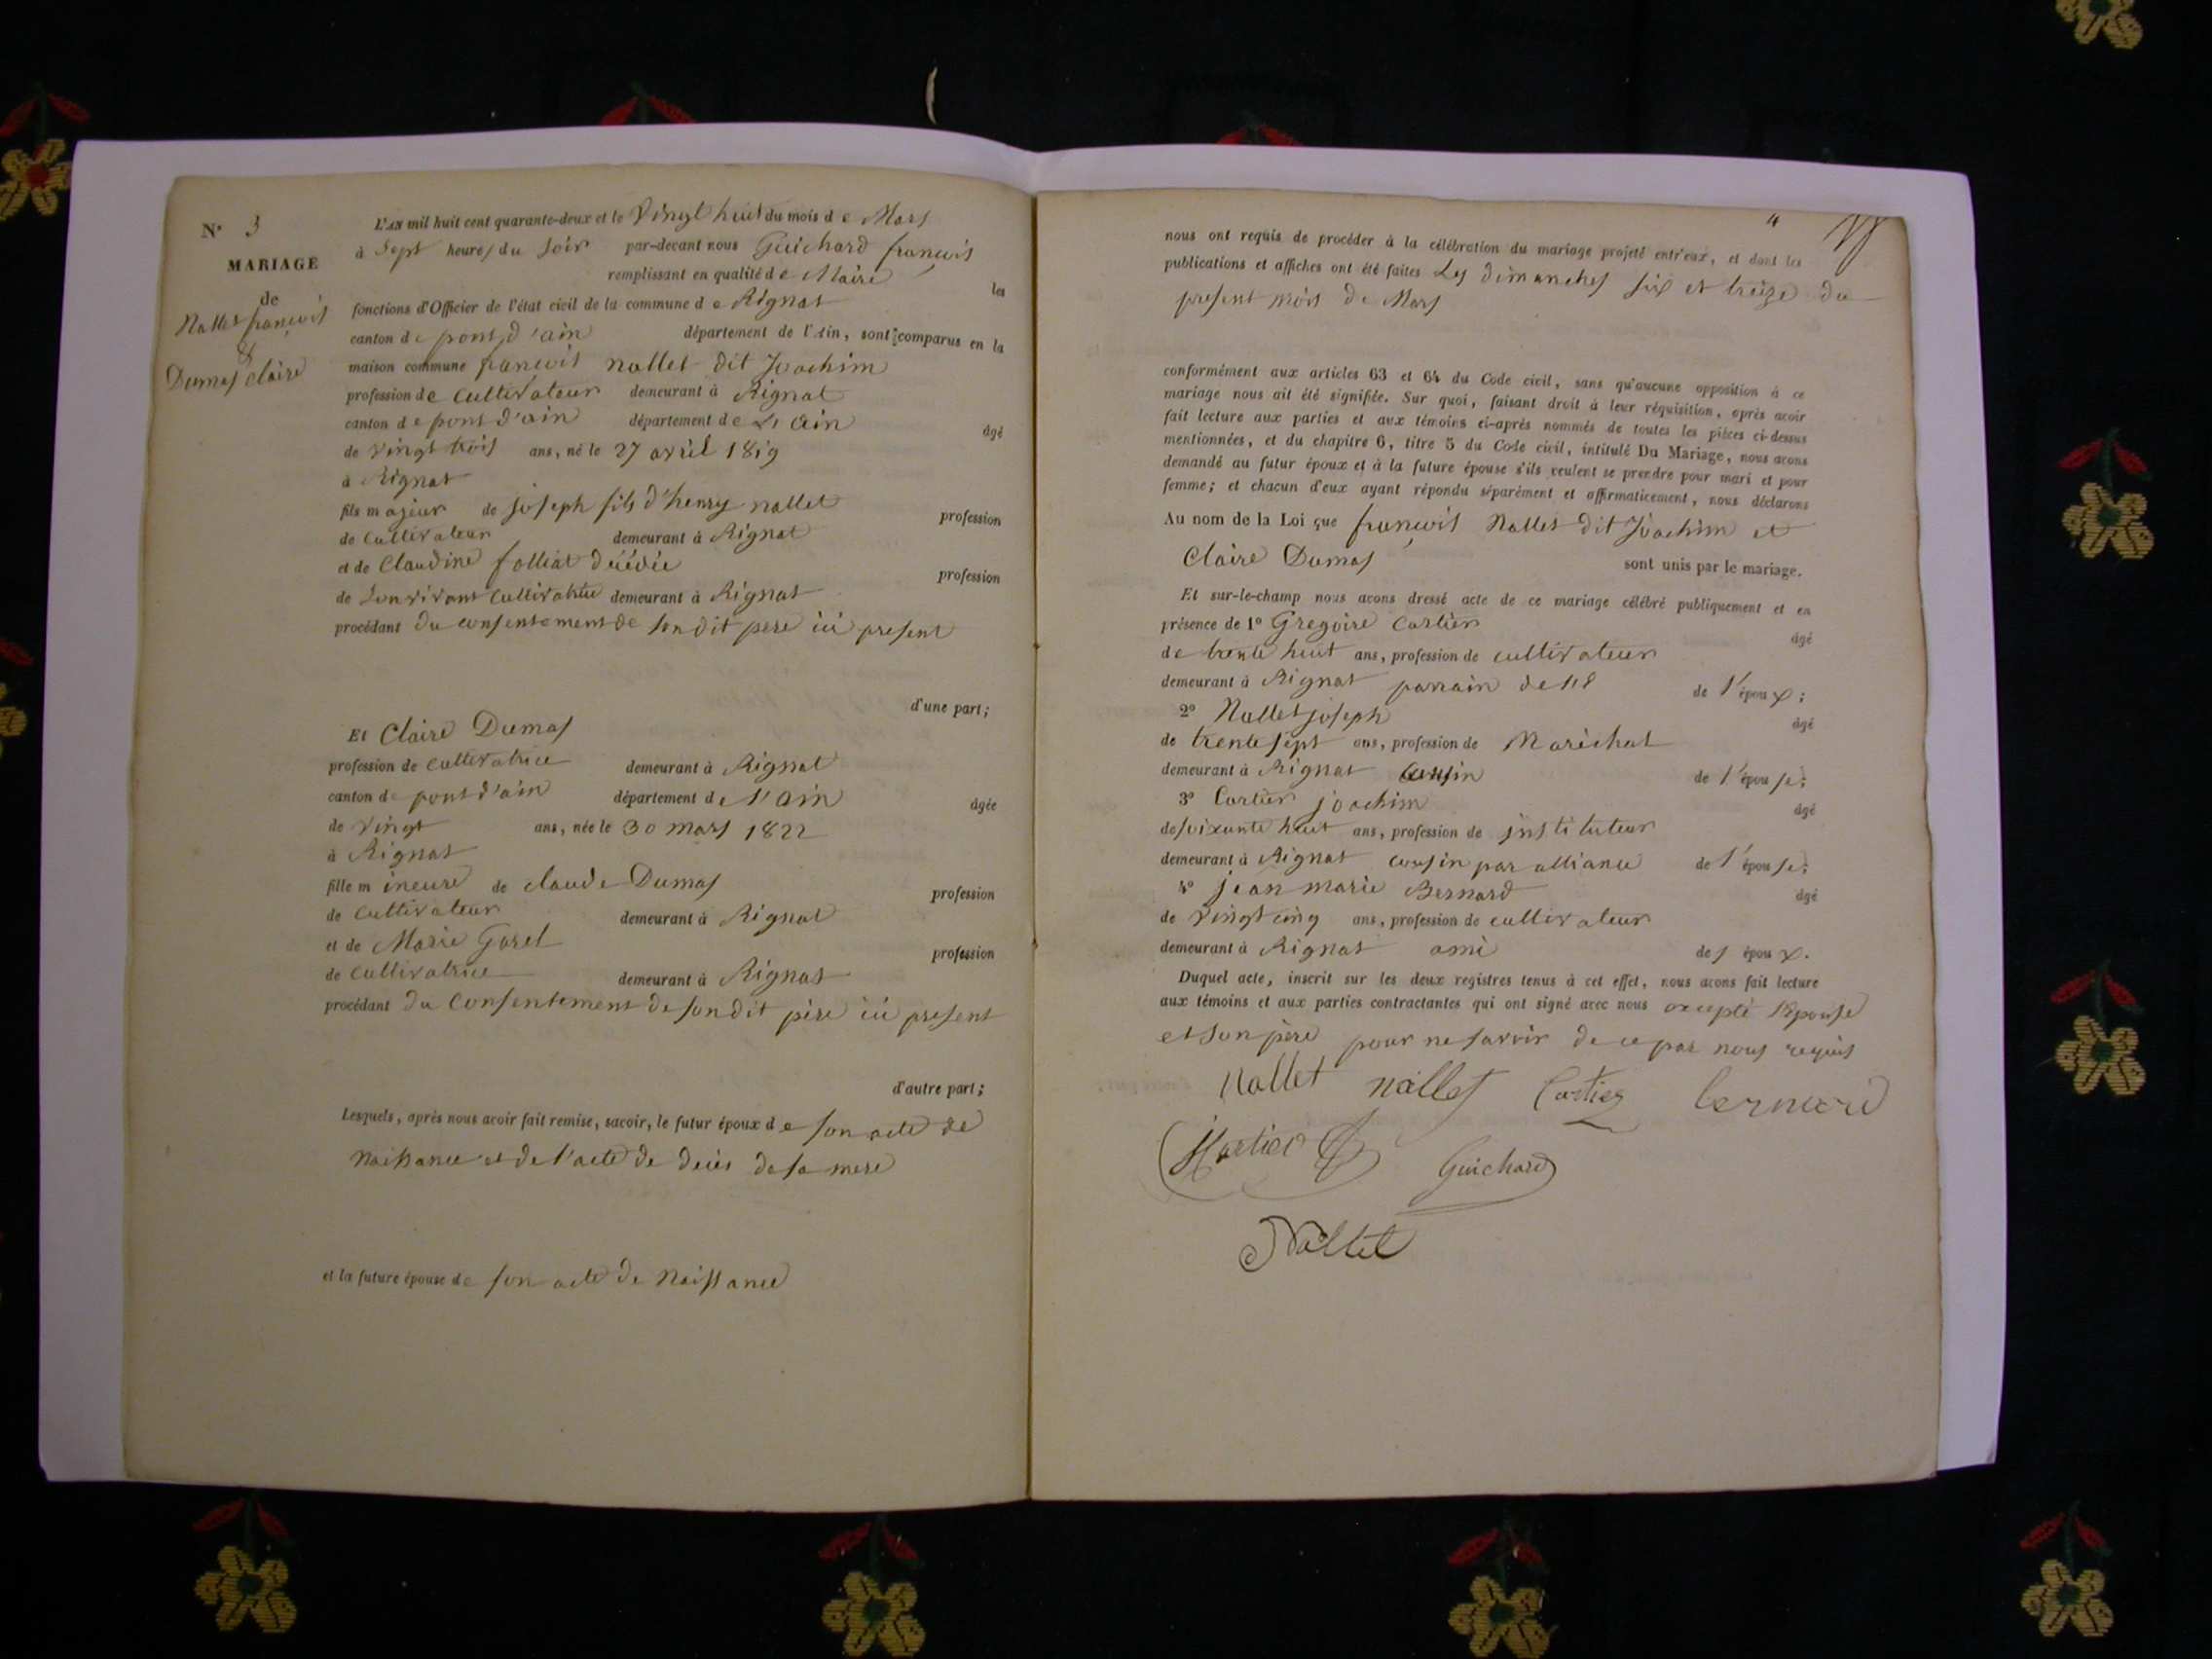 N° 3
MARIAGE
de
Nallet françois
&
Dumas claire
L'AN mil huit cent quarante-deux et le Vingt huit du mois de Mars
à Sept heures du soir par-devant nous Guichard françois
remplissant en qualité de Maire les
fonctions d'Officier de l'état civil de la commune de Rignat
canton de pont d'ain département de l'Ain, sont comparus en la
maison commune françois nallet dit Joachim
profession de cultivateur demeurant à Rignat
canton de pont d'ain département de L'ain âgé
de vingt trois ans, né le 27 avril 1819
à Rignat
fils majeur de joseph fils d'henry nallet profession
de cultivateur demeurant à Rignat
et de Claudine folliat décédée profession
de Son vivant cultivatrice demeurant à Rignat
procédant du consentement de son dit pere ici present
d'une part;
Et Claire Dumas
profession de cultivatrice demeurant à Rignat
canton de pont d'ain département de l'ain âgée
de vingt ans, née le 30 mars 1822
à Rignat
fille mineure de claude Dumas profession
de cultivateur demeurant à Rignat
et de Marie Garel profession
de cultivatrice demeurant à Rignat
procédant du consentement de son dit père ici present
d'autre part;
Lesquels, après nous avoir fait remise, savoir, le futur époux de son acte de
Naissance et de l'acte de deces de sa mere
et la future épouse de son acte de Naissance
4
nous ont requis de procéder à la célébration du mariage projeté entr'eux, et dont les
publications et affiches ont été faites Les dimanches six et treize du
present mois de Mars
conformément aux articles 63 et 64 du Code civil, sans qu'aucune opposition à ce
mariage nous ait été signifiée. Sur quoi, faisant droit à leur réquisition, après avoir
fait lecture aux parties et aux témoins ci-après nommés de toutes les pièces ci-dessus
mentionnées, et du chapitre 6, titre 5 du Code civil, intitulé Du Mariage, nous avons
demandé au futur époux et à la future épouse s'ils veulent se prendre pour mari et pour
femme; et chacun d'eux ayant répondu séparément et affirmativement, nous déclarons
Au nom de la Loi que françois Nallet dit Joachim et
Claire Dumas sont unis par le mariage.
Et sur-le-champ nous avons dressé acte de ce mariage célébré publiquement et en
présence de 1° Gregoire Cartier âgé
de trente huit ans, profession de cultivateur
demeurant à Rignat parrain de l'époux;
2° Nallet joseph âgé
de trente sept ans, profession de Maréchal
demeurant à Rignat cousin de l'épouse;
3° Cartier joachim âgé
de soixante huit ans, profession de instituteur
demeurant à Rignat cousin par alliance de l'épouse;
4° jean marie Bernard âgé
de vingt cinq ans, profession de cultivateur
demeurant à Rignat ami des époux.
Duquel acte, inscrit sur les deux registres tenus à cet effet, nous avons fait lecture
aux témoins et aux parties contractantes qui ont signé avec nous excepté l'épouse
et son père pour ne savoir de ce par nous requis
Nallet nallet Cartier bernard
Cartier Guichard
Nallet